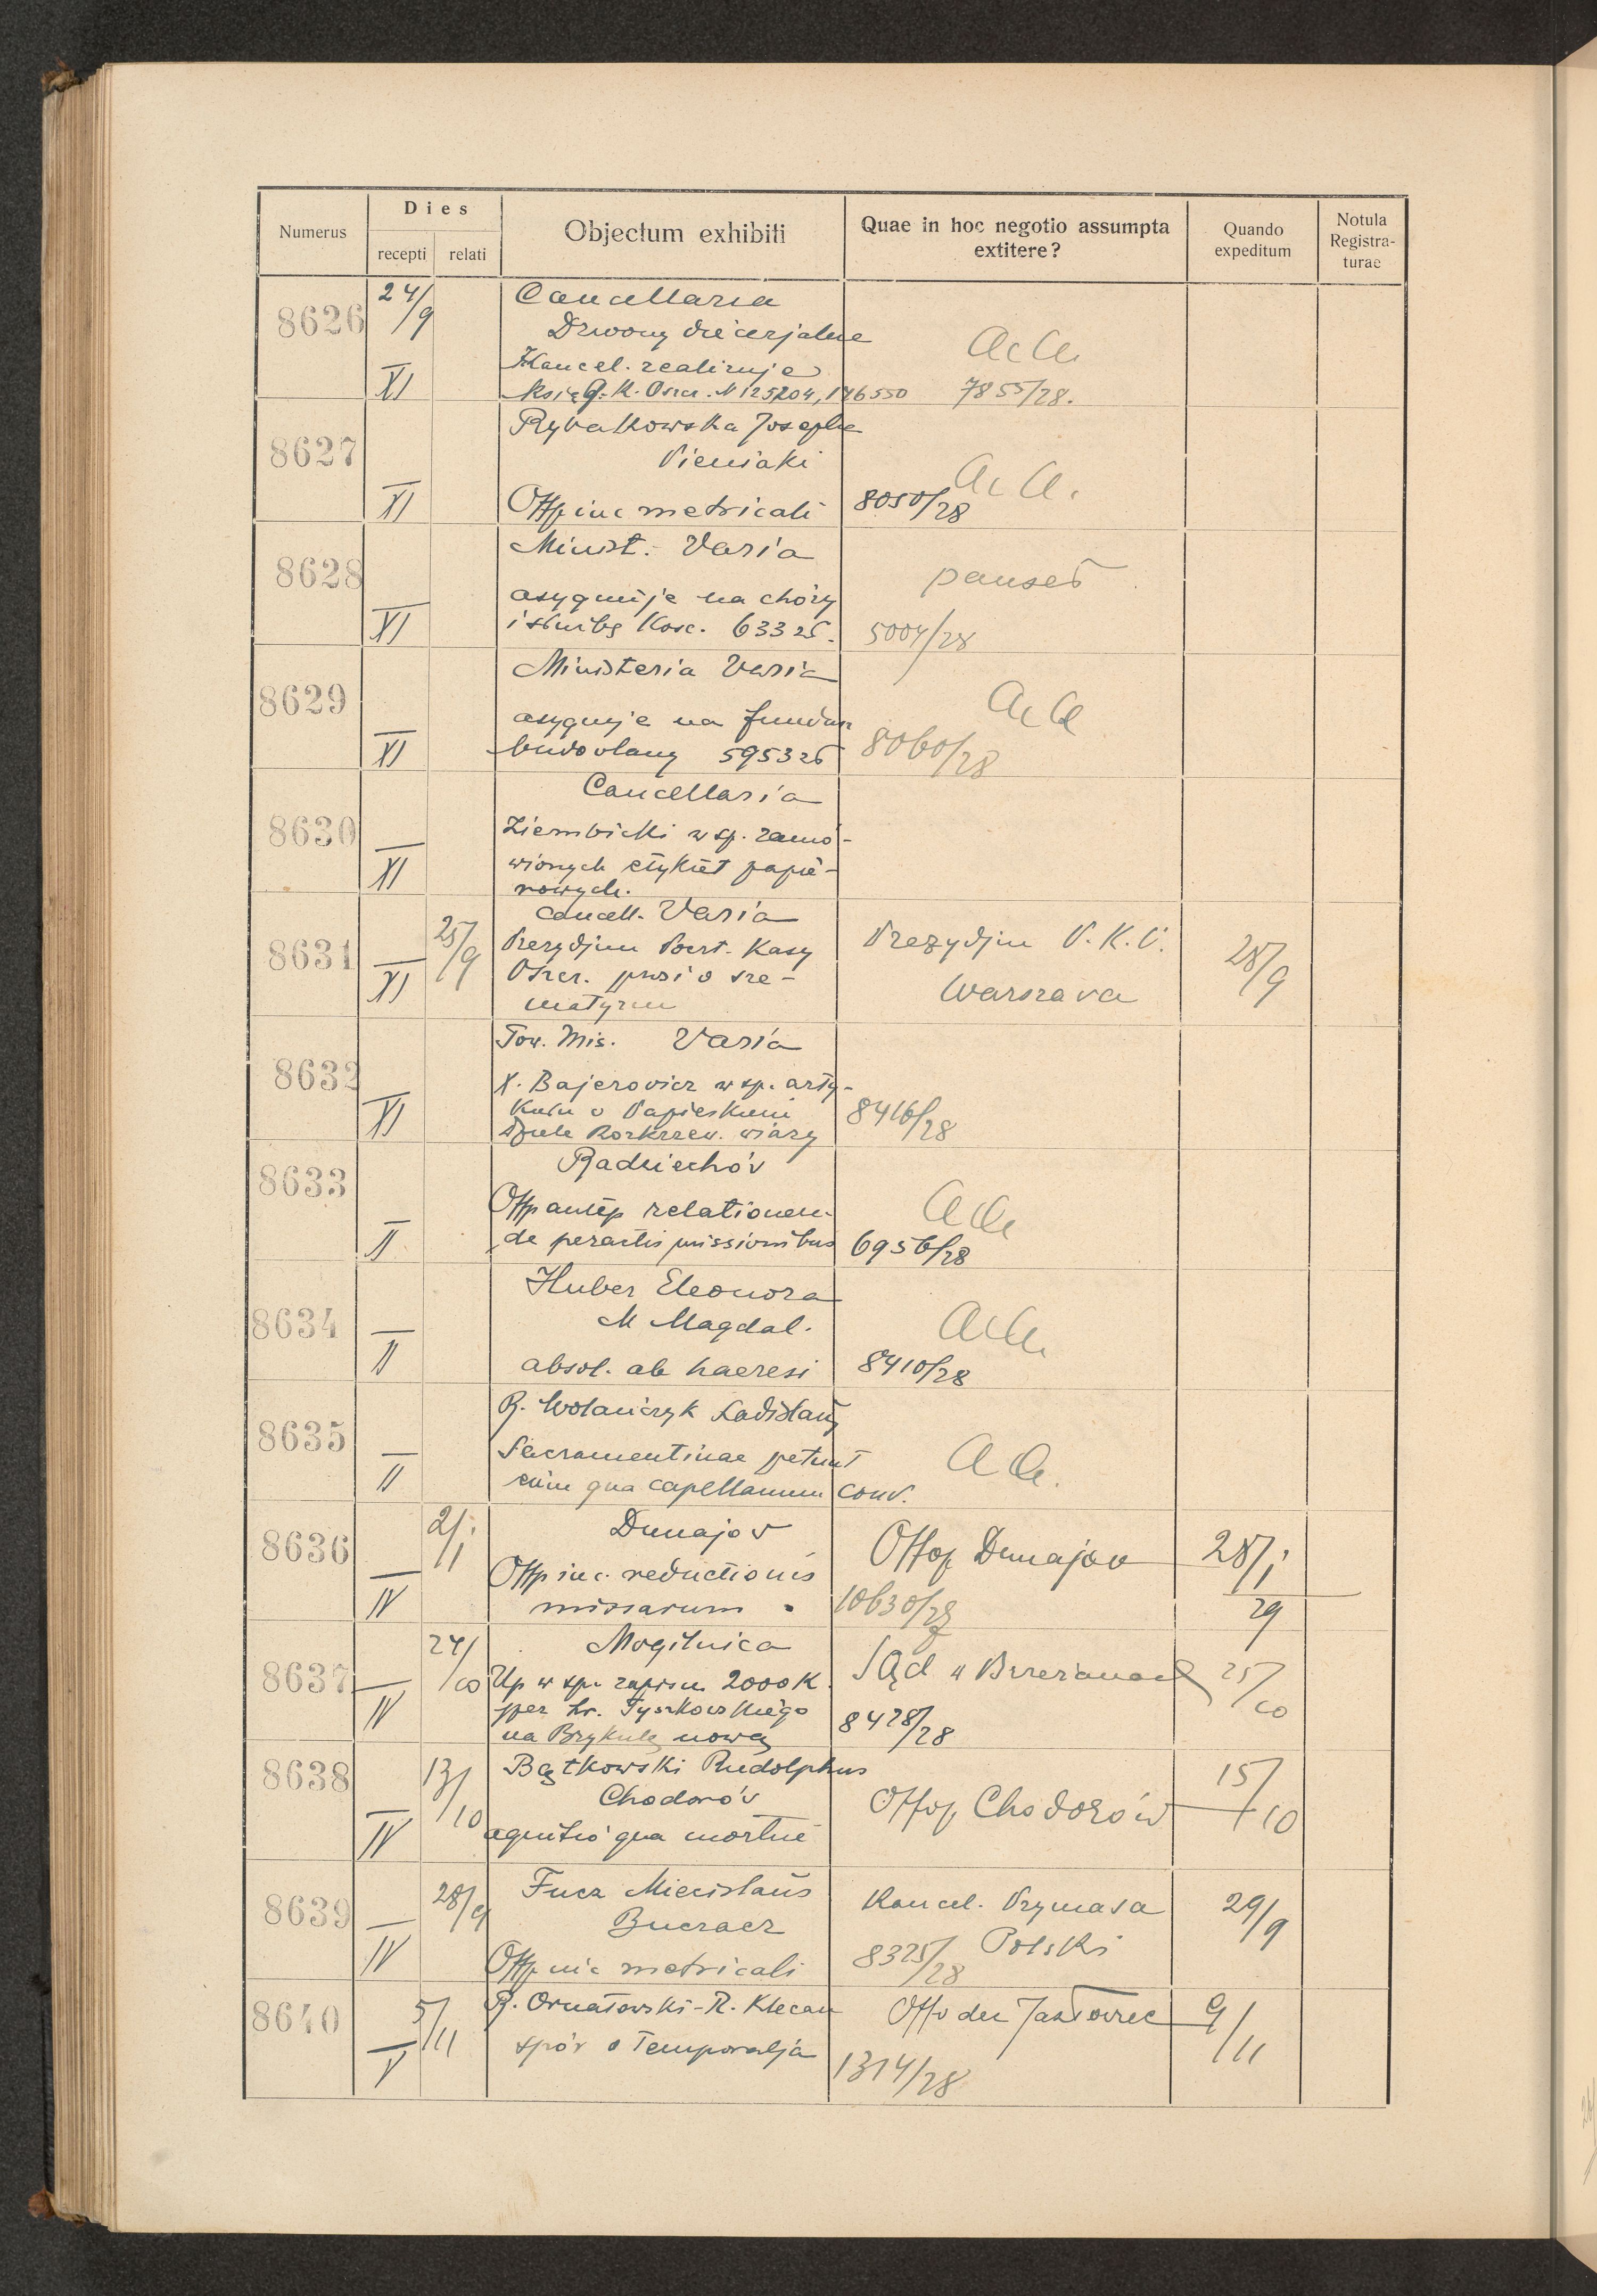 Numerus
Dies
recepti
relati
Objectum exhibiti
Quae in hoc negotio assumpta
extitere?
Quando
expeditum
Notula
Registra-
turae
8626
24/9
XI
Cancellaria
Dzwony diecezjalne
Kancel. realizuje
książ. P. K. Oszcz. N 125204, 146550
AcA
7855/28.
8627
XI
Rybatkowska Josepha
Pieniaki
Offp in c metricali
AcA.
8050/28
8628
XI
Minist. Varia
asygnuje na chóry
i służbę Kość. 633 zł.
5004/28
8629
XI
Ministeria Varia
asygnuje na fundusz
budowlany 5953 zł
AcA
8060/28
8630
XI
Cancellaria
Ziembicki w sp. zamó-
wionych etykiet papie-
rowych.
8631
XI
25/9
Cancell. Varia
Prezydjum Poczt. Kasy
Oszcz. prosi o sze-
matyzm
Prezydjum P. K. O.
Warszawa
28/9
8632
XI
Tow. Mis. Varia
X. Bajerowicz w sp. arty-
kułu o Papieskiem
dziele Rozkrzew. wiary
8416/28
8633
II
Radziechów
Offp ansēp relationem
de peractis missionibus
AcA
6956/28
8634
II
Huber Eleonora
M Magdal.
absol. ab haeresi
AcA
8410/28
8635
II
R. Wołańczyk Ladislaus
Sacramentinae petunt
eum qua capellanum conv.
AcA.
8636
IV
2/1
Dunajow
Offp in c. reductionis
missarum
Offop Dunajow
10630/28
28/1
29
8637
IV
24/10
Mogilnica
Up w sp. zapisu 2000 K
per hr. Tyszkowskiego
na Brykulę nową
Sąd w Brzeżanach
8428/28
25/10
8638
IV
13/10
Bątkowski Rudolphus
Chodorów
agnitio qua mortui
Offop Chodorów
15/10
8639
IV
28/9
Fucz Miecislaus
Buczacz
Offp in c metricali
Kancel. Prymasa
Polski
8325/28
29/9
8640
V
5/11
R. Ornatowski - R. Klecan
spór o Temporalja
Offo dec Jazłowiec
1314/28
9/11